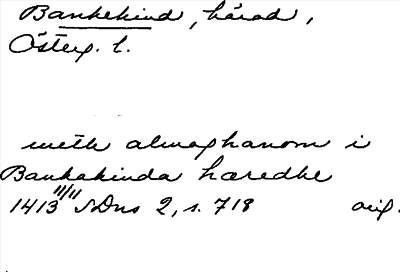 Bankekind, härad,
Österg. l.
meth almoghanom i
Bankakinda hæredhe
1413 11/11 SDns 2, s. 718 orig.